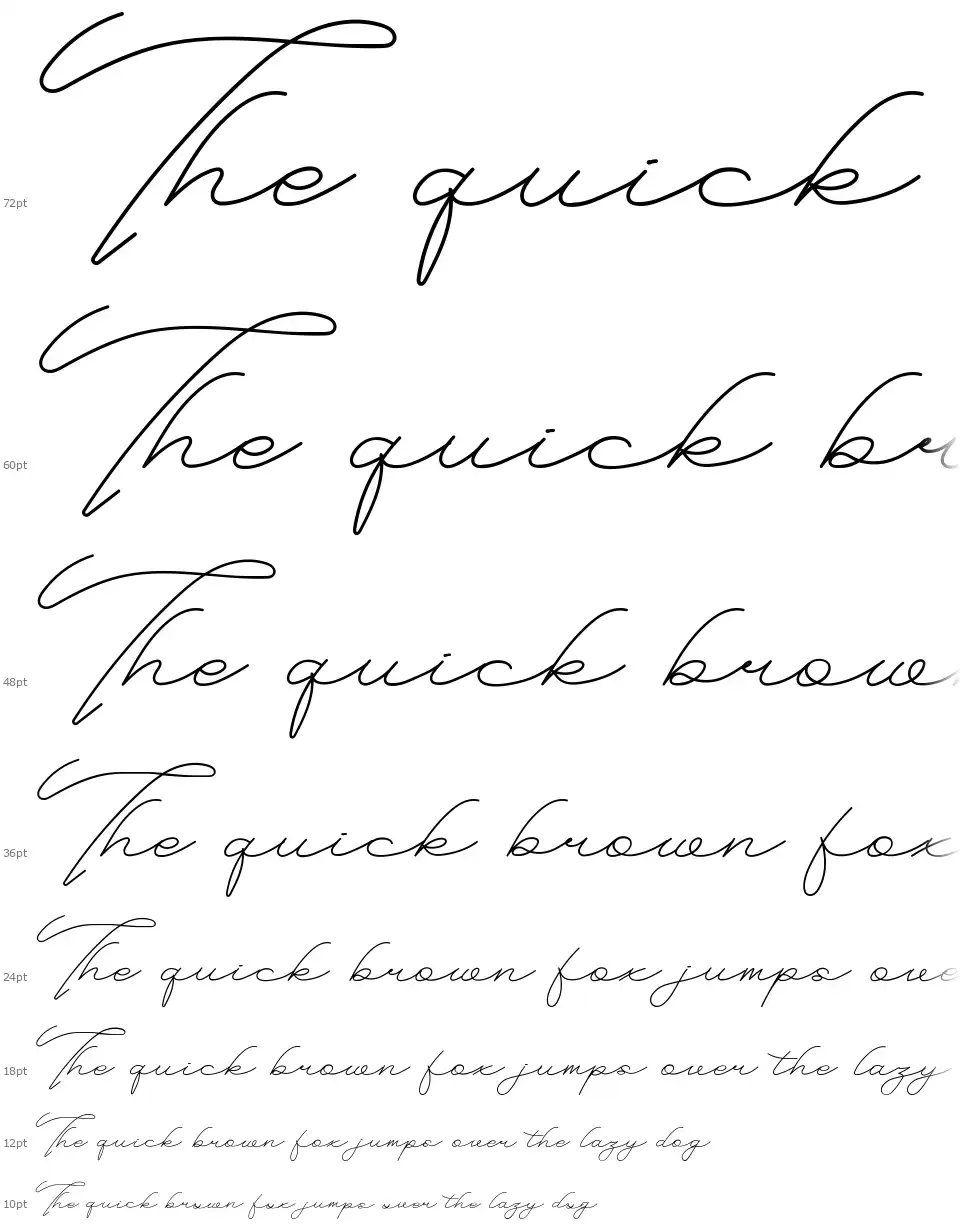 72pt The quick
60pt The quick br
48pt The quick brown
36pt The quick brown fox
24pt The quick brown fox jumps ove
18pt The quick brown fox jumps over the lazy
12pt The quick brown fox jumps over the lazy dog
10pt The quick brown fox jumps over the lazy dog